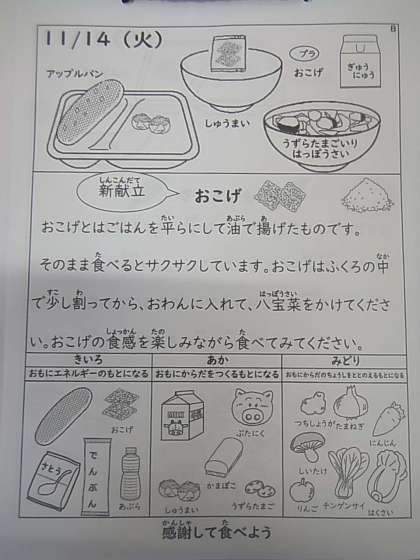 11/14 (火)
B
アップルパン
しゅうまい
プラ
おこげ
ぎゅうにゅう
うずらたまごいり
はっぽうさい
しんこんだて
新献立
おこげ
おこげとはごはんを平らにして油で揚げたものです。
そのまま食べるとサクサクしています。おこげはふくろの中
で少し割ってから、おわんに入れて、八宝菜をかけてくださ
い。おこげの食感を楽しみながら食べてみてください。
きいろ
おもにエネルギーのもとになる
おこげ
さとう
でんぷん
あぶら
あか
おもにからだをつくるもとになる
ぶたにく
かまぼこ
うずらたまご
みどり
おもにからだのちょうしをととのえるもとになる
つちしょうが
たまねぎ
にんじん
しいたけ
りんご
チンゲンサイ
はくさい
感謝して食べよう